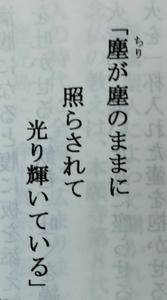 「塵が塵のままに
照らされて
光り輝いている」